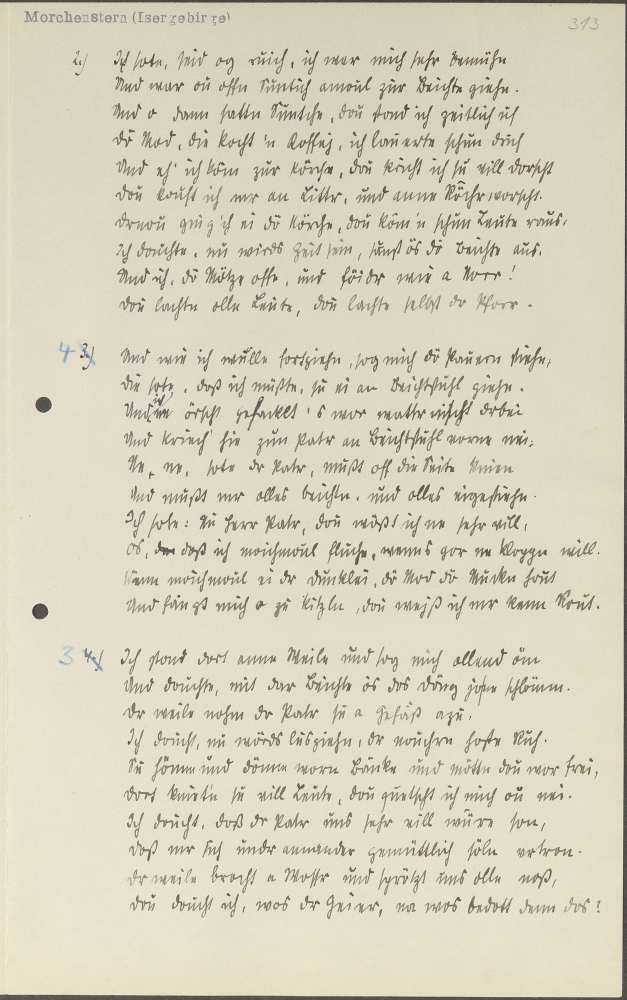 Morchenstern (Isergebirge)
313
2.) Ich sote, seid og ruich, ich war mich sehr bemühn
Und war ou offn Suntich amoul zur Beichte giehn.
Und o dann sattn Suntche, dou stond ich zeitlich uf
Dö Mod, die kocht 'n Koffej, ich lauerte schun druf
Und eh' ich köm zur Körche, dou kricht ich su vill Dorscht
Dou kauft ich mr an Littr, und anne Röchrworscht.
Drnou ging ich ei dö Körche, dou köm'n schun Leute raus,
Ich douchte, nu wirds Zeit sein, sunst ös dö Beichte aus.
Und ich, dö Mütze offe, und före wie a Norr!
Dou lachtn olle Leute, dou lachte selbst dr Pforr.
4 3.) Und wie ich wulle fortgiehn, sog mich dö Pauern stiehn,
Die sote, doß ich müßte, su ei an Beichtstuhl giehn.
Und ich örscht gefacklt 's wor wattr nischt drbei
Und kriech' hie zun Patr an Beichtstuhl vorne nei:
Ne, ne, sote dr Patr, mußt off die Seite knien
Und mußt mr olles beichtn, und olles eigestiehn.
Ich sote: Nu Herr Patr, dou wößt ich ne sehr vill,
Os, doß ich moichmoul fluche, wenns gor ne kloppn will.
Wenn moichmoul ei dr Dunklei, dö Mod dö Mucken hout
Und fängt mich o zu kitzln, dou weiß ich mr kenn Rout.
3 4.) Ich stond dort anne Weile und sog mich ollend öm
Und douchte, mit dar Beichte ös dos Döng schlömm.
Dr weile nohm dr Patr su a Gefäß azu.
Ich doucht, nu wörds lusgiehn, dr nouchrn hoste Ruh.
Su hömm und dömm worn Bänke und möttn dou wor frei,
Dort knietn su vill Leute, dou quetscht ich mich ou nei.
Ich doucht, doß dr Patr uns sehr vill würe son,
Doß mr sich undr annander gemüttlich söln vrtron.
Dr weile brocht a Wossr und sprötzt uns olle noß,
Dou doucht ich, wos dr Geier, na wos bedott denn dos?